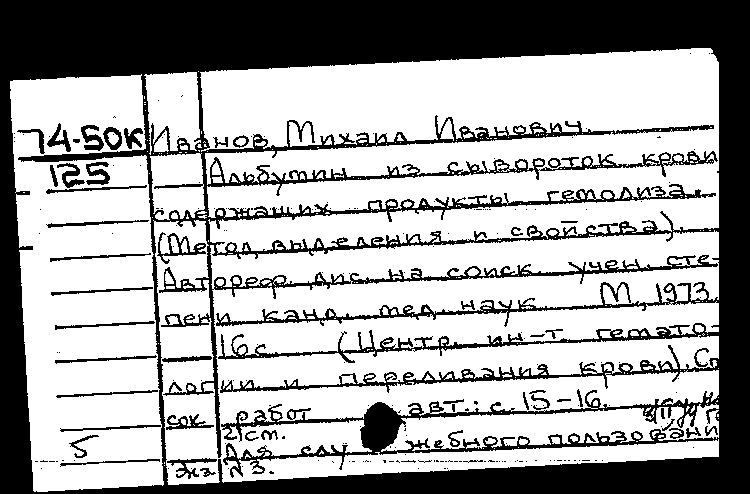 74-50К Иванов, Михаил Иванович.
125 Альбумины из сывороток крови
содержащих продукты гемолиза.
(Метод выделения и свойства).
Автореф. дис. на соиск. учен. сте-
пени канд. мед. наук М., 1973.
16 с. (Центр. ин-т. гемато-
логии и переливания крови). Сп
сок работ авт.: с. 15-16.
21 см.
5 Для служебного пользовани
Экз N 3.